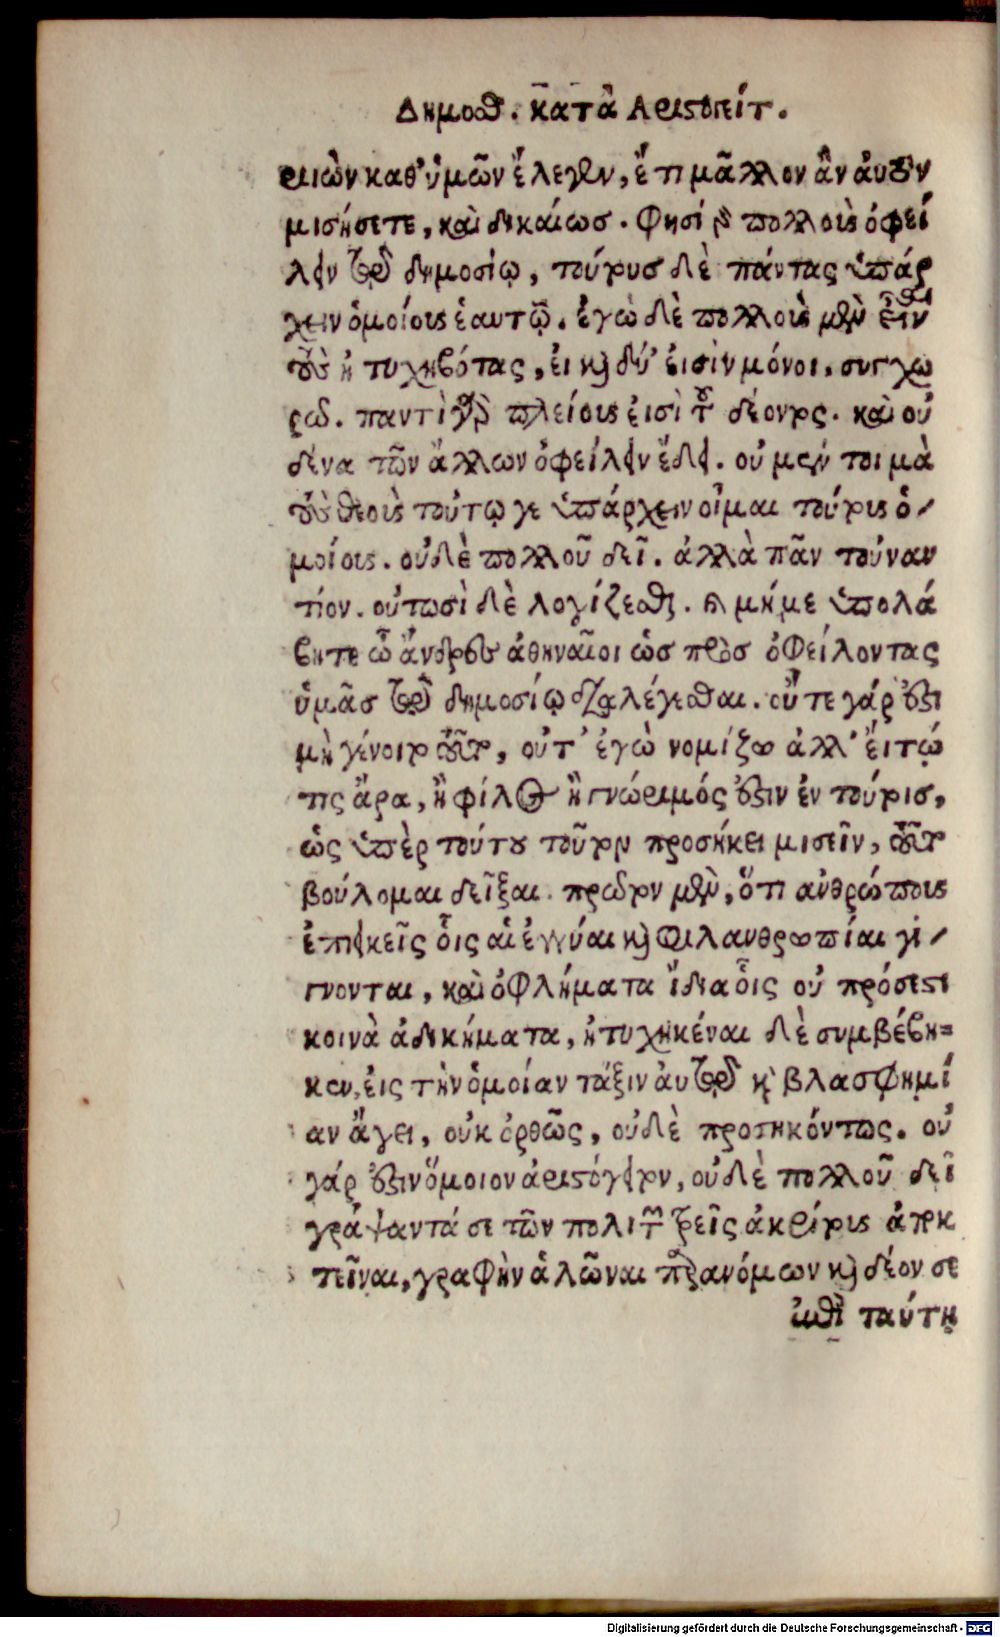 Δημοσθ. κατὰ Αριστογείτ.
ριων καθ' ὑμῶν ἔλεγεν, ἔτι μᾶλλον ἂν αὐτὸν
μισήσετε, καὶ δικαίως. Φησὶ γὰρ πολλοὺς ὀφεί
λειν τῷ δημοσίῳ, τούτους δὲ πάντας ὑπάρ
χειν ὁμοίους ἑαυτῷ. ἐγὼ δὲ πολλοὺς μὲν εἶναι
τοὺς ἠτυχηκότας, εἰ καὶ δύ' εἰσὶν μόνοι, συγχω
ρῶ. παντὶ γὰρ πλείους εἰσὶ τοῦ δέοντος. καὶ οὐ
δένα τῶν ἄλλων ὀφείλειν ἔδει. οὐ μέν τοι μὰ
τοὺς θεοὺς τούτῳ γε ὑπάρχειν οἶμαι τούτους ὁ-
μοίους. οὐδὲ πολλοῦ δεῖ. ἀλλὰ πᾶν τοὐναν
τίον. οὑτωσὶ δὲ λογίζεσθε. καὶ μή με ὑπολά
βητε ὦ ἄνδρες ἀθηναῖοι ὡς πρὸς ὀφείλοντας
ὑμᾶς τῷ δημοσίῳ διαλέγεσθαι. οὔτε γάρ ἐστι
μὴ γένοιτο τοῦτο, οὔτ' ἐγὼ νομίζω ἀλλ' εἴ τῴ
τις ἄρα, ἢ φίλος ἢ γνώριμός ἐστιν ἐν τούτοις,
ὡς ὑπὲρ τούτου τοῦτον προσήκει μισεῖν, τοῦτο
βούλομαι δεῖξαι. πρῶτον μὲν, ὅτι ἀνθρώπους
ἐπιεικεῖς οἷς αἱ ἐγγύαι καὶ φιλανθρωπίαι γί-
γνονται, καὶ ὀφλήματα ἴδια οἷς οὐ πρόσεστι
κοινὰ ἀδικήματα, ἠτυχηκέναι δὲ συμβέβη=
κεν, εἰς τὴν ὁμοίαν τάξιν αὑτῷ κατὰ βλασφημί
αν ἄγει, οὐκ ὀρθῶς, οὐδὲ προσηκόντως. οὐ
γάρ ἐστιν ὅμοιον ἀριστόγειτον, οὐδὲ πολλοῦ δεῖ
γράψαντά σε τῶν πολιτῶν τρεῖς ἀκρίτους ἀποκ
τεῖναι, γραφὴν ἁλῶναι παρανόμων καὶ δέον σε
ἐπὶ ταύτῃ
Digitalisierung gefördert durch die Deutsche Forschungsgemeinschaft - DFG